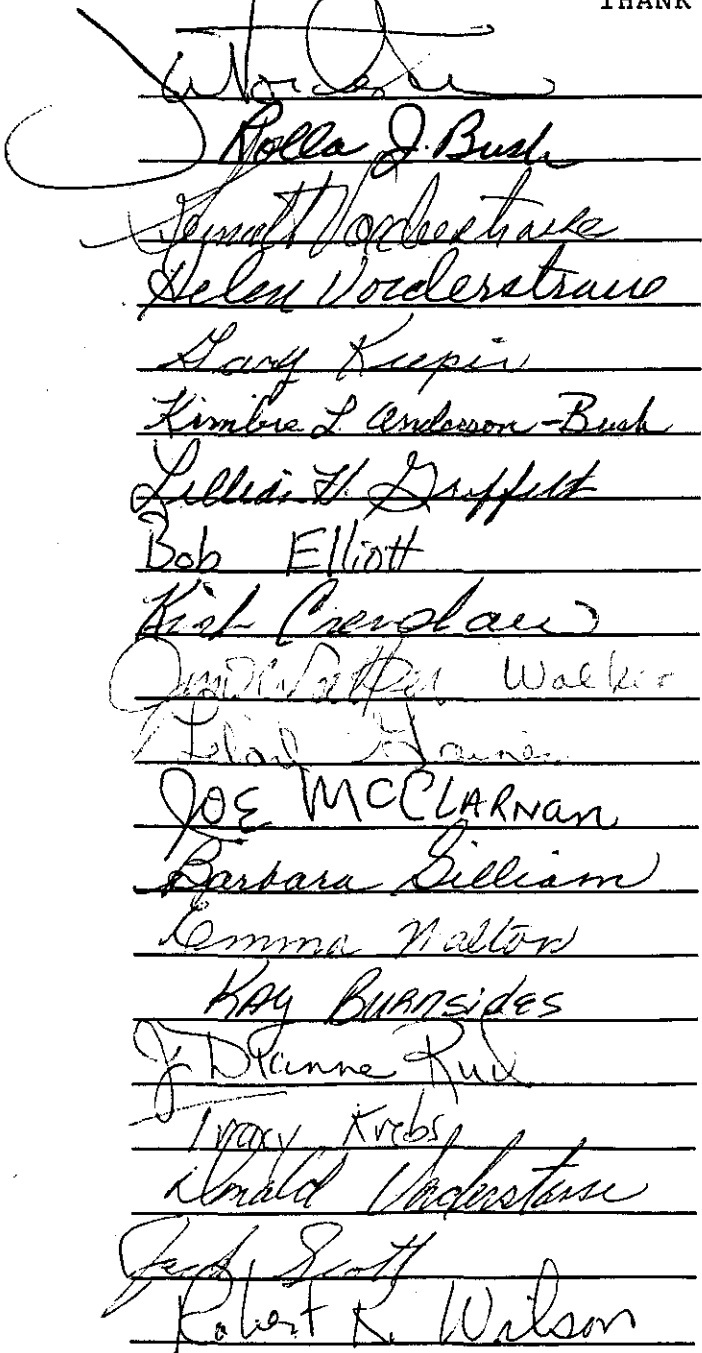 THANK
Rolla J. Bush
Vorderstrasse
Helen Vorderstrasse
Gary
Kimbre L. Anderson-Bush
Lillian H.
Bob Elliott
Kirk Crenshaw
Walker
JOE MCCLARNAN
Barbara Gilliam
Emma Walton
KAY BURNSIDES
J Dianne
Krebs
Donald Vorderstrasse
Jack Scott
Robert K. Wilson